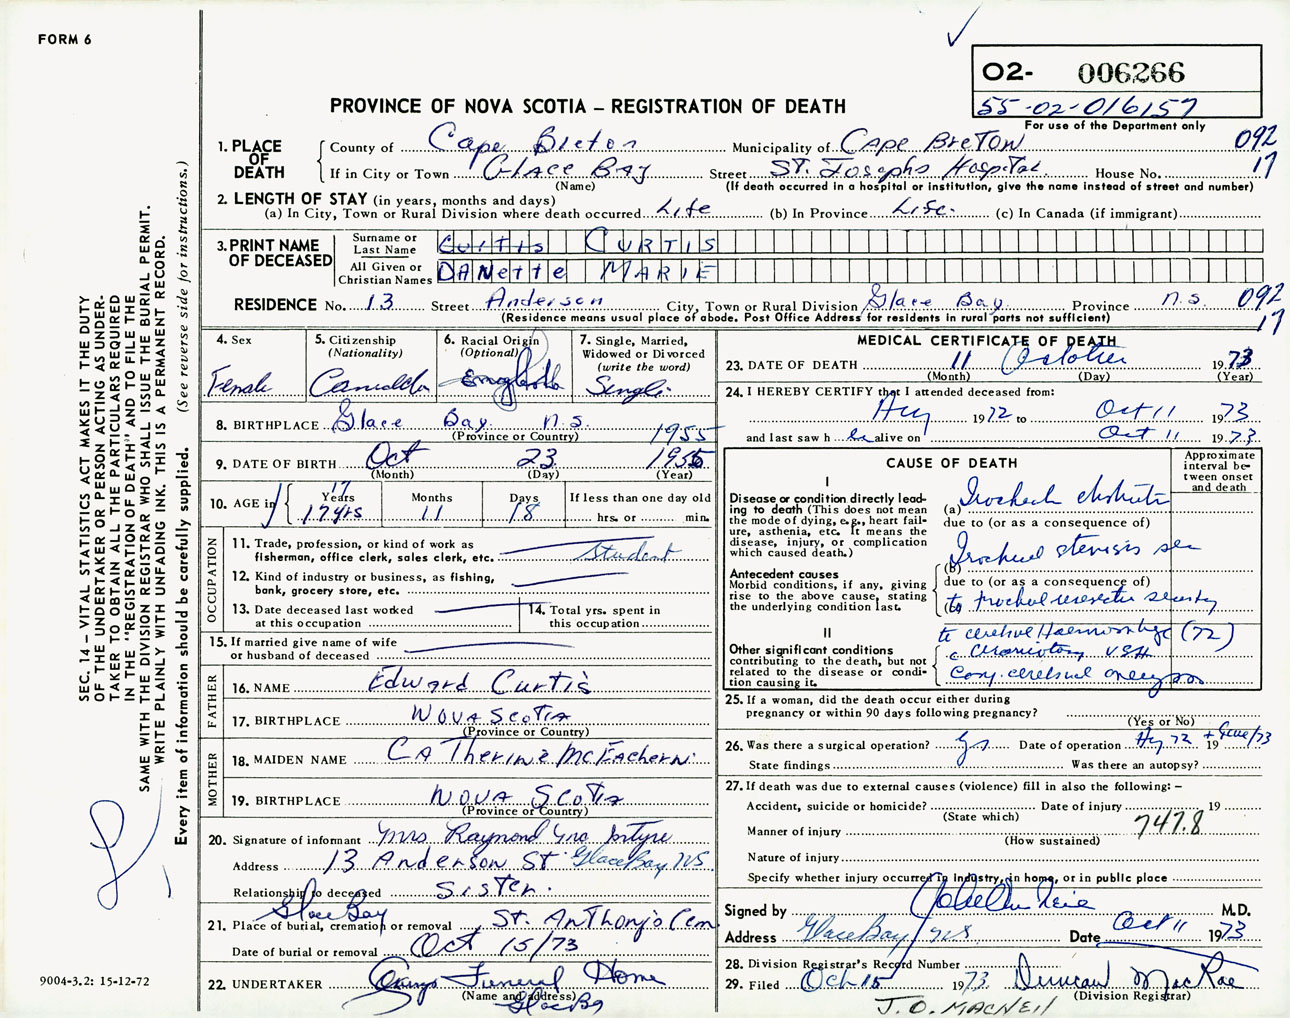 FORM 6
O2- 006266
55-02-016157
For use of the Department only
PROVINCE OF NOVA SCOTIA – REGISTRATION OF DEATH
092
17
1. PLACE OF DEATH
County of Cape Breton Municipality of Cape Breton
If in City or Town Glace Bay Street St. Josephs Hospital House No.
(Name) (If death occurred in a hospital or institution, give the name instead of street and number)
2. LENGTH OF STAY (in years, months and days)
(a) In City, Town or Rural Division where death occurred Life (b) In Province Life. (c) In Canada (if immigrant)
3. PRINT NAME OF DECEASED
Surname or Last Name Curtis CURTIS
All Given or Christian Names DANette MARIE
RESIDENCE No. 13 Street Anderson City, Town or Rural Division Glace Bay Province n.s. 092
17
(Residence means usual place of abode. Post Office Address for residents in rural parts not sufficient)
4. Sex
Female
5. Citizenship
(Nationality)
6. Racial Origin
(Optional)
7. Single, Married, Widowed or Divorced
(write the word)
Single
8. BIRTHPLACE Glace Bay n.s.
(Province or Country)
1955
9. DATE OF BIRTH Oct 23 1955
(Month) (Day) (Year)
10. AGE in
Years Months Days If less than one day old
17
17 yrs 11 18 hrs. or min.
OCCUPATION
11. Trade, profession, or kind of work as
fisherman, office clerk, sales clerk, etc. Student
12. Kind of industry or business, as fishing,
bank, grocery store, etc.
13. Date deceased last worked
at this occupation
14. Total yrs. spent in
this occupation
15. If married give name of wife
or husband of deceased
FATHER
16. NAME Edward Curtis
17. BIRTHPLACE Nova Scotia
(Province or Country)
MOTHER
18. MAIDEN NAME CATherine McEachern
19. BIRTHPLACE Nova Scotia
(Province or Country)
20. Signature of informant Mrs Raymond
Address 13 Anderson St Glace Bay NS.
Relationship to deceased Sister.
Glace Bay
21. Place of burial, cremation or removal St. Anthony's Cem
Date of burial or removal Oct 15/73
22. UNDERTAKER Funeral Home
(Name and address)
Glace Bay
MEDICAL CERTIFICATE OF DEATH
23. DATE OF DEATH 11 October 1973
(Month) (Day) (Year)
24. I HEREBY CERTIFY that I attended deceased from:
1972 to Oct 11 1973
and last saw h er alive on Oct 11 1973
CAUSE OF DEATH
Approximate interval between onset and death
I
Disease or condition directly leading to death (This does not mean the mode of dying, e.g., heart failure, asthenia, etc. It means the disease, injury, or complication which caused death.)
(a) Tracheal
due to (or as a consequence of)
(b) Tracheal stenosis
Antecedent causes
Morbid conditions, if any, giving rise to the above cause, stating the underlying condition last.
due to (or as a consequence of)
(c)
II
Other significant conditions
contributing to the death, but not related to the disease or condition causing it.
to cerebral Haemorrhage (72)
craniotomy
Cong. cerebral
25. If a woman, did the death occur either during
pregnancy or within 90 days following pregnancy?
(Yes or No)
26. Was there a surgical operation? yes Date of operation 72 19 + June/73
State findings Was there an autopsy?
27. If death was due to external causes (violence) fill in also the following: –
Accident, suicide or homicide? Date of injury 19
(State which)
Manner of injury 747.8
(How sustained)
Nature of injury
Specify whether injury occurred in Industry, in home, or in public place
Signed by M.D.
Address Glace Bay NS Date Oct 11 1973
28. Division Registrar's Record Number
29. Filed Oct 15 1973 Duncan MacRae
(Division Registrar)
J. O. MACNEIL
SEC. 14 – VITAL STATISTICS ACT MAKES IT THE DUTY
OF THE UNDERTAKER OR PERSON ACTING AS UNDER-
TAKER TO OBTAIN ALL THE PARTICULARS REQUIRED
IN THE "REGISTRATION OF DEATH" AND TO FILE THE
SAME WITH THE DIVISION REGISTRAR WHO SHALL ISSUE THE BURIAL PERMIT.
WRITE PLAINLY WITH UNFADING INK. THIS IS A PERMANENT RECORD.
Every item of information should be carefully supplied. (See reverse side for instructions.)
9004-3.2: 15-12-72